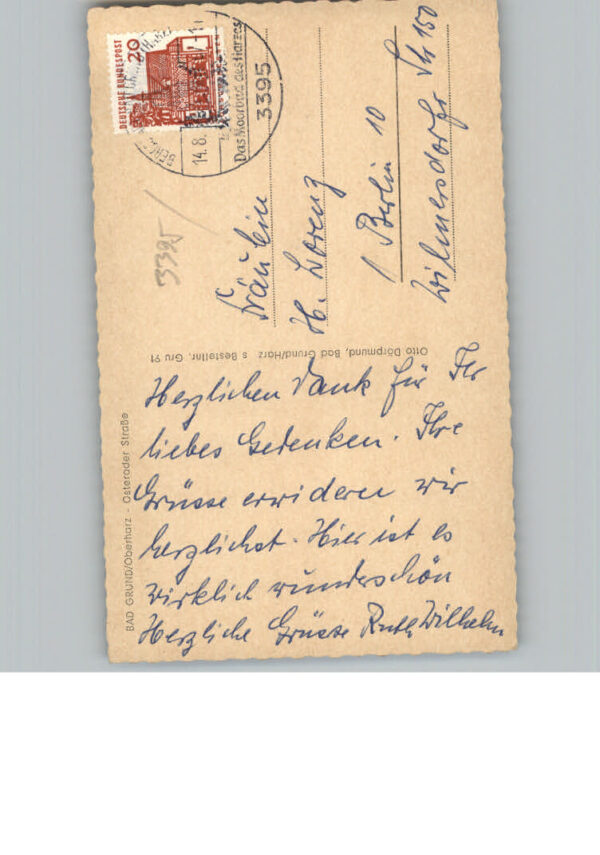 BAD GRUND/Oberharz - Osteroder Straße
Herzlichen Dank für Ihr
liebes Gedenken. Ihre
Grüsse erwidern wir
herzlichst. Hier ist es
wirklich wunderschön
Herzliche Grüsse Ruth Wilhelm
Otto Dörpmund, Bad Grund/Harz s Bestellnr. Gru 91
3395
DEUTSCHE BUNDESPOST
20
14.8.
Das Moorbad des Harzes
3395
Fräulein
H. Lorenz
1 Berlin 10
Wilmersdorfer Str 150